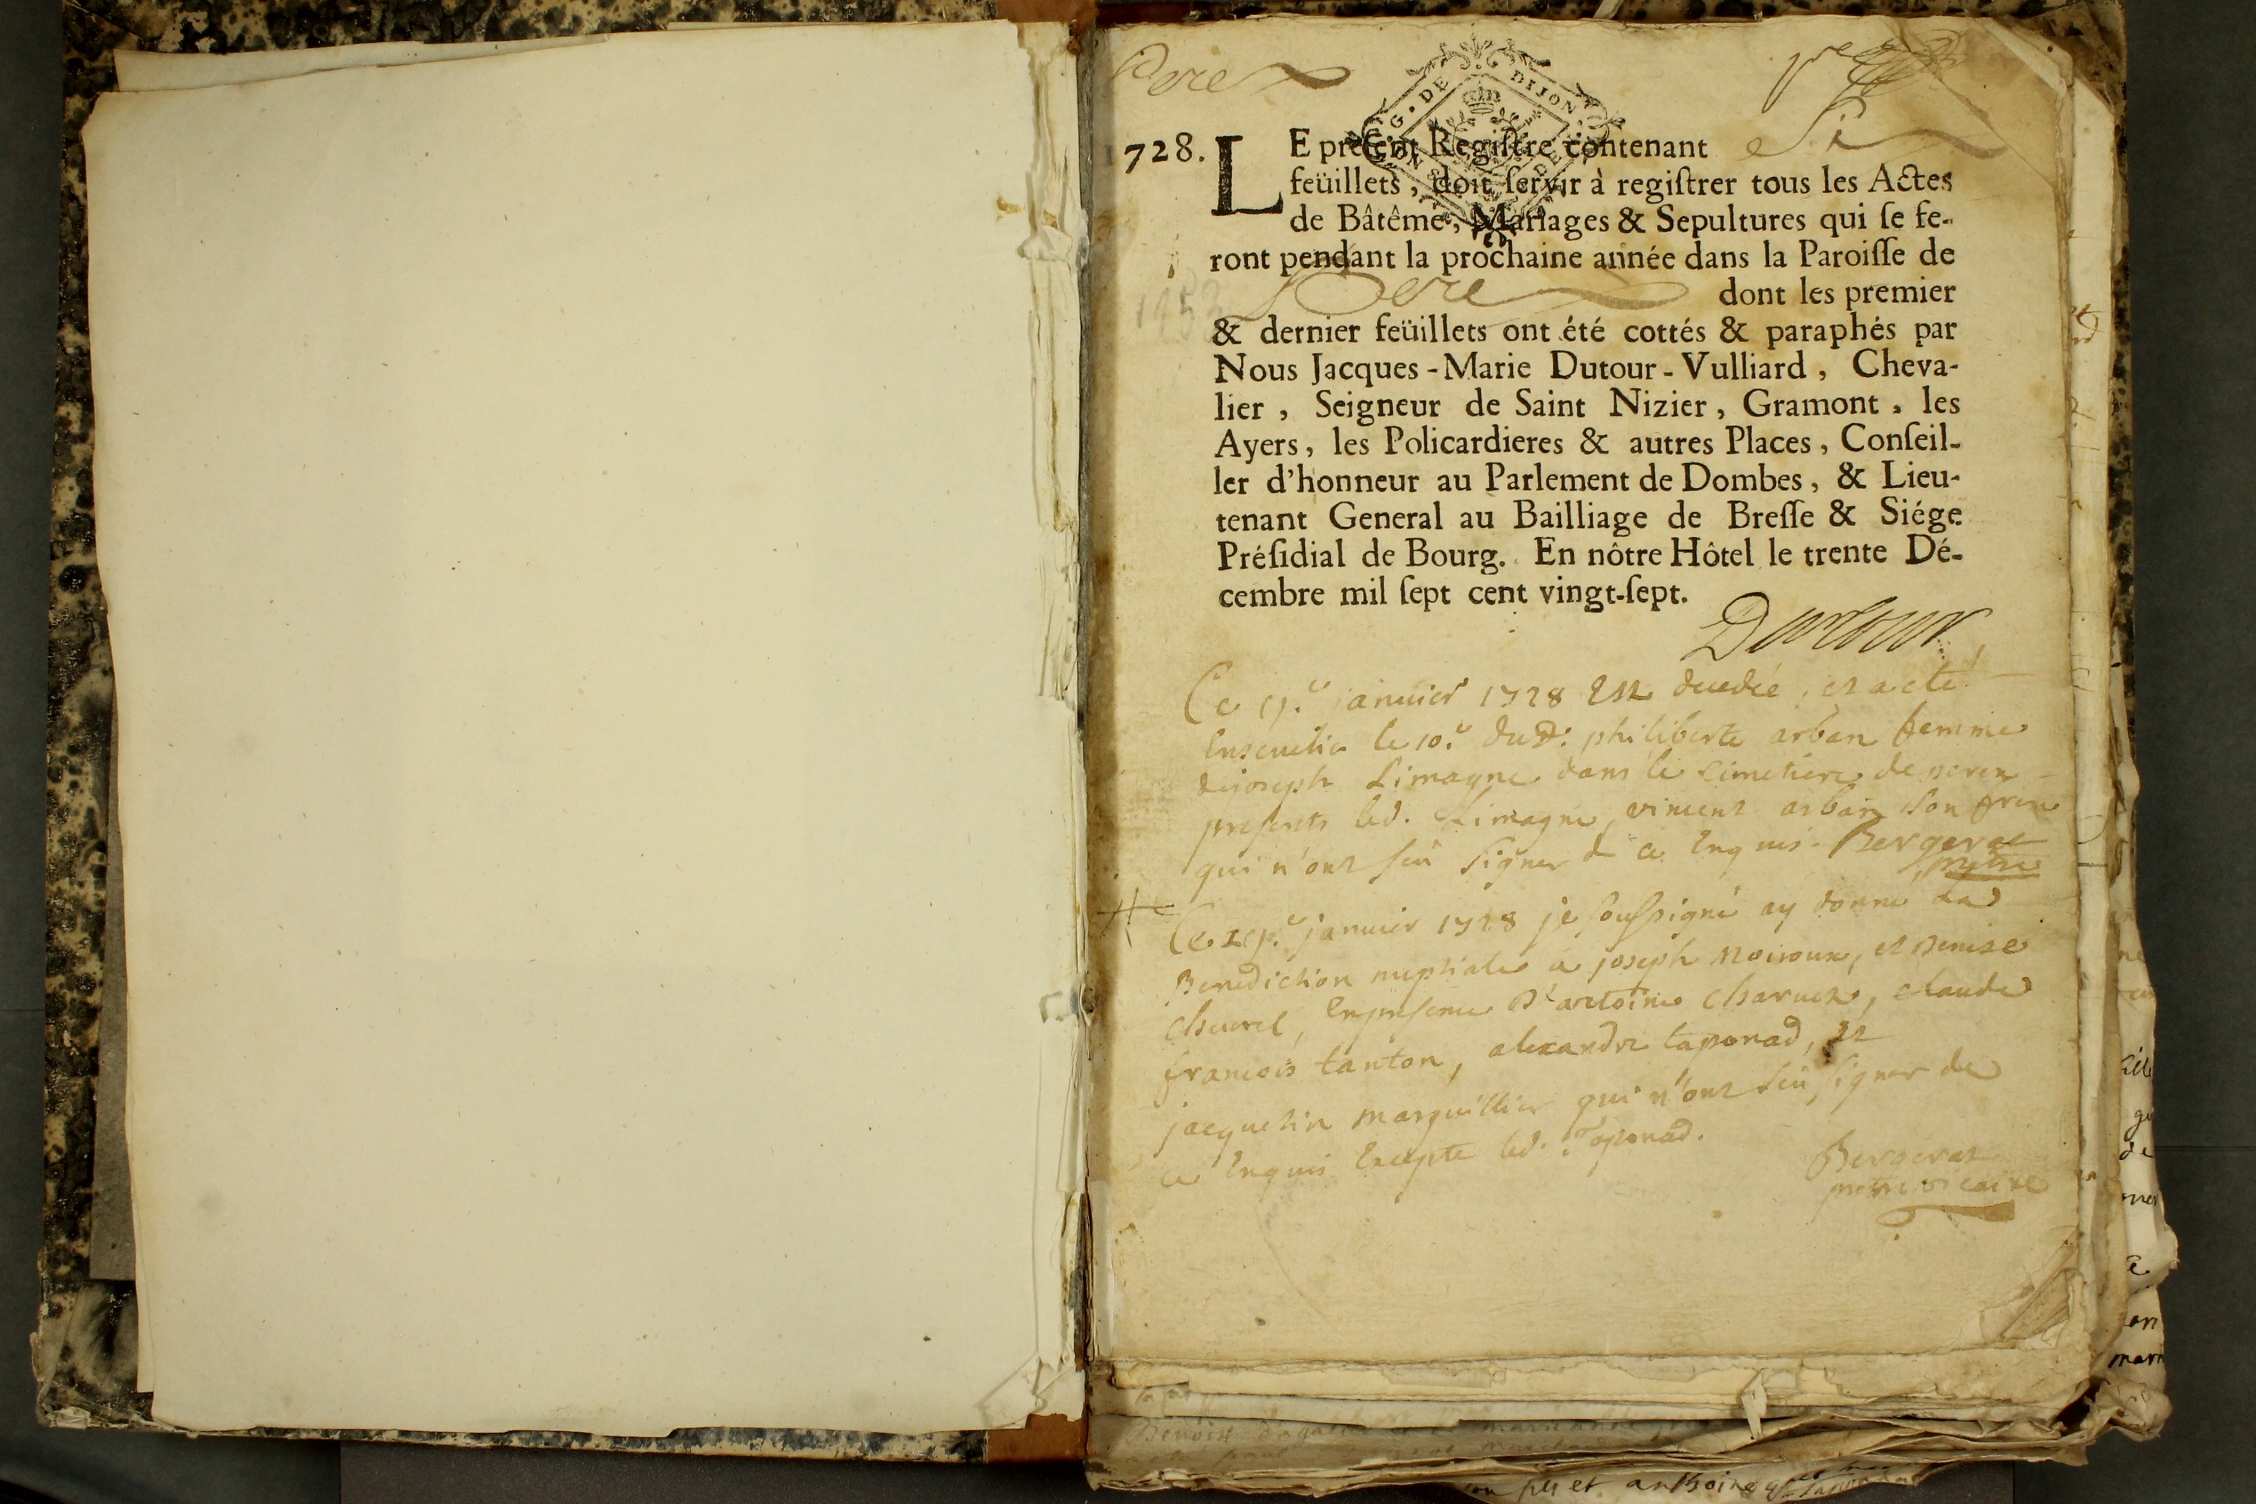 Pere
GEN. DE DIJON
1728. LE present Registre contenant Si
feüillets, doit servir à registrer tous les Actes
de Bâtême, Mariages & Sepultures qui se fe-
ront pendant la prochaine année dans la Paroisse de
dont les premier
& dernier feüillets ont été cottés & paraphés par
Nous Jacques-Marie Dutour-Vulliard, Cheva-
lier, Seigneur de Saint Nizier, Gramont, les
Ayers, les Policardieres & autres Places, Conseil-
ler d'honneur au Parlement de Dombes, & Lieu-
tenant General au Bailliage de Bresse & Siége
Présidial de Bourg. En nôtre Hôtel le trente Dé-
cembre mil sept cent vingt-sept.
Dutour
Ce 9.e janvier 1728 Est decedée, et a eté
Ensevelie le 10.e dud: philiberte arban femme
de joseph Limagne dans le cimetiere de peren
presents led. Limagne, vincent arban son frere
qui n'ont sceu signer de ce Enquis. Bergerat
pretre
Ce 19.e janvier 1728 je soussigné ay donné la
Benediction nuptiale a joseph Moiroux, et Denise
Chevrel, En presence d'antoine Charvet, claude
francois tanton, alexandre taponad, et
jacquelin marguillier qui n'ont sceu signer de
ce Enquis Excepte led. Taponad.
Bergerat
pretre vicaire